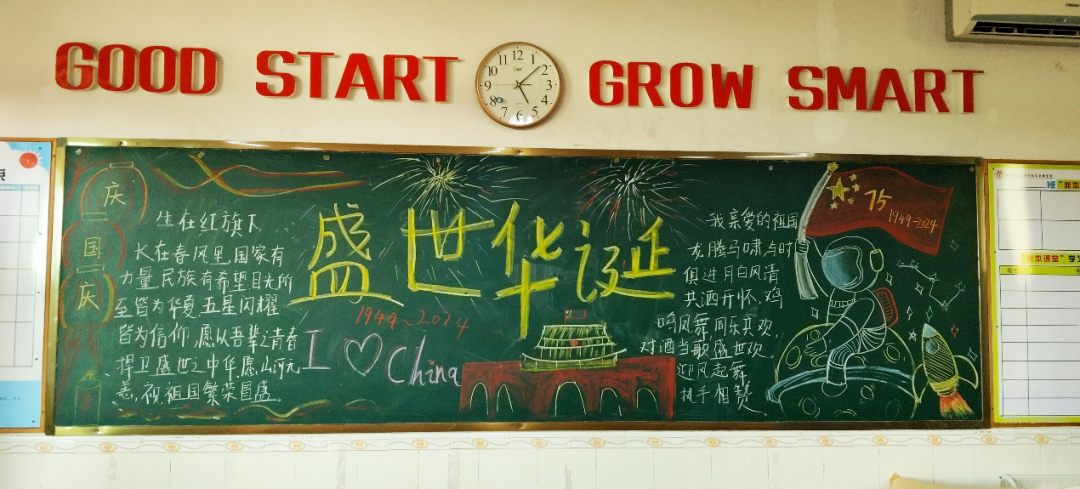 GOOD START GROW SMART
12
1
2
3
4
5
6
7
8
9
10
11
庆
国
庆
生在红旗下
长在春风里,国家有
力量,民族有希望目光所
至皆为华夏,五星闪耀
皆为信仰,愿以吾辈之青春
捍卫盛世之中华,愿山河无
恙,祝祖国繁荣昌盛。
盛世华诞
1949~2024
I ♡ China
我亲爱的祖国
龙腾马啸点时
俱进月白风清
共酒开怀,鸡
鸣凤舞同乐其欢,
对酒当歌盛世欢
迎风起舞
执手相赞。
75
1949-2024